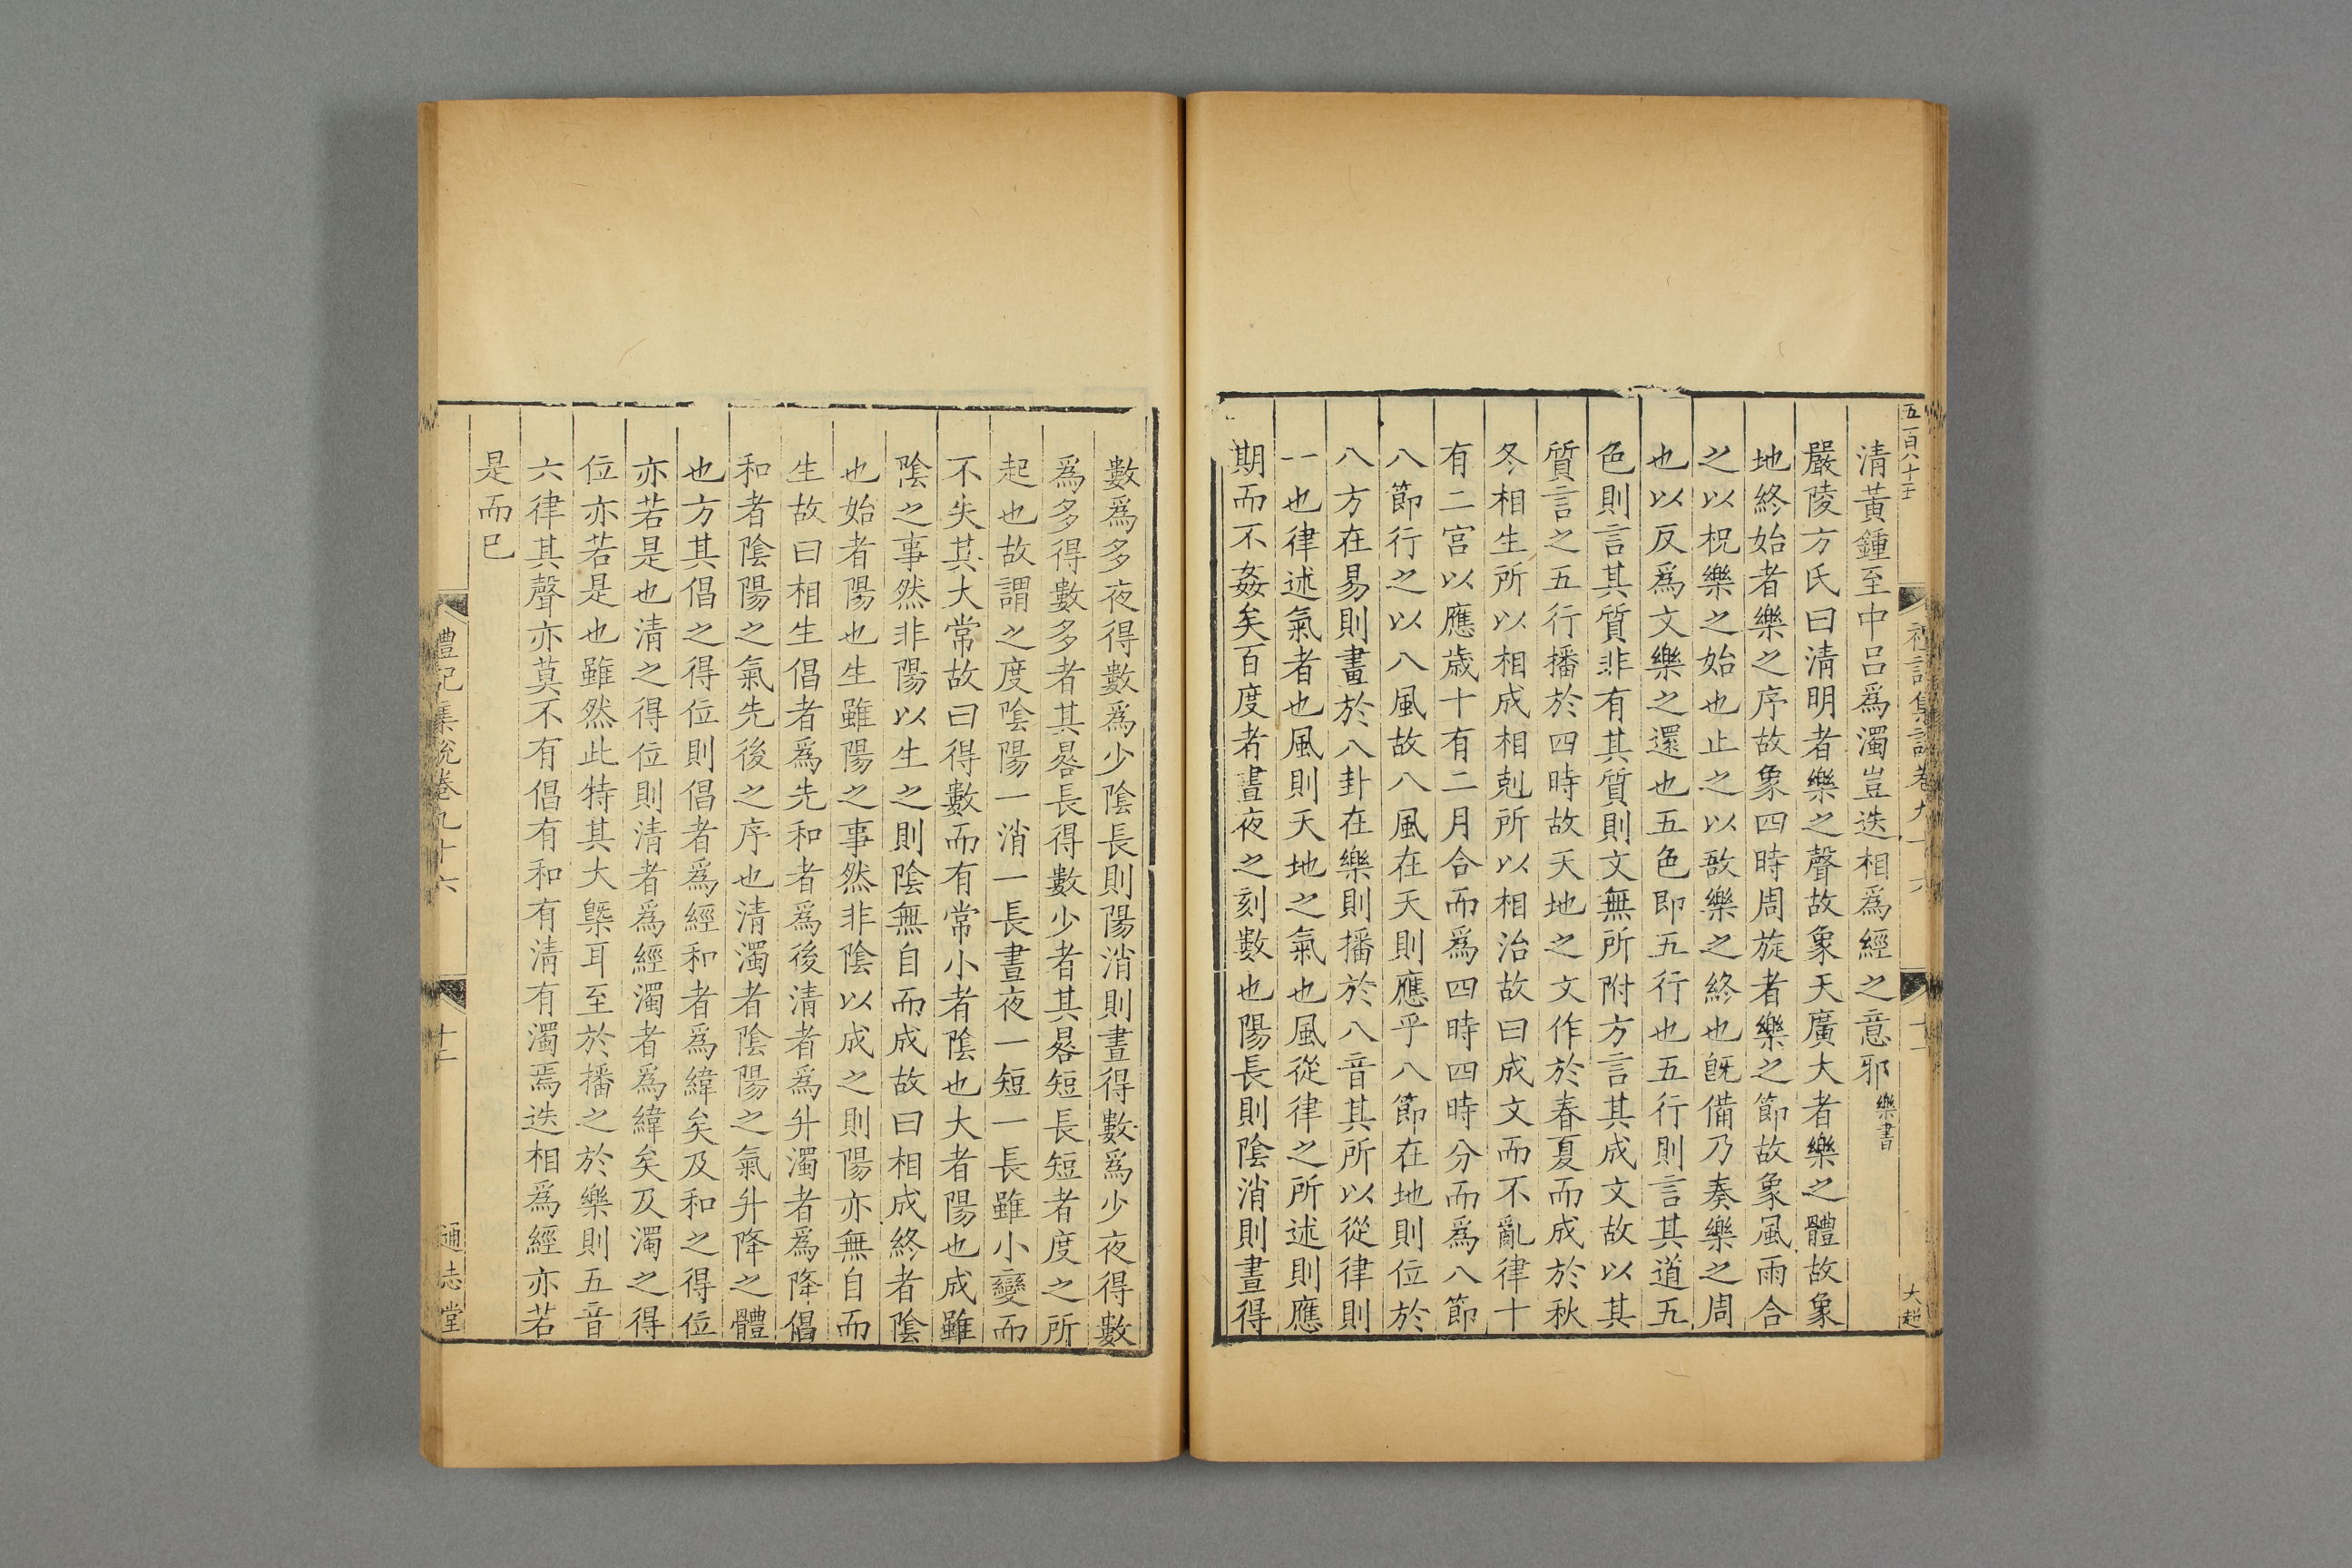 五百八十三
禮記集說卷九十六
十一
大趙
清黃鍾至中呂爲濁豈迭相爲經之意邪樂書
嚴陵方氏曰清明者樂之聲故象天廣大者樂之體故象
地終始者樂之序故象四時周旋者樂之節故象風雨合
之以柷樂之始也止之以敔樂之終也旣備乃奏樂之周
也以反爲文樂之還也五色即五行也五行則言其道五
色則言其質非有其質則文無所附方言其成文故以其
質言之五行播於四時故天地之文作於春夏而成於秋
冬相生所以相成相剋所以相治故曰成文而不亂律十
有二宮以應歲十有二月合而爲四時四時分而爲八節
八節行之以八風故八風在天則應乎八節在地則位於
八方在易則畫於八卦在樂則播於八音其所以從律則
一也律述氣者也風則天地之氣也風從律之所述則應
期而不姦矣百度者晝夜之刻數也陽長則陰消則晝得
數爲多夜得數爲少陰長則陽消則晝得數爲少夜得數
爲多得數多者其晷長得數少者其晷短長短者度之所
起也故謂之度陰陽一消一長晝夜一短一長雖小變而
不失其大常故曰得數而有常小者陰也大者陽也成雖
陰之事然非陽以生之則陰無自而成故曰相成終者陰
也始者陽也生雖陽之事然非陰以成之則陽亦無自而
生故曰相生倡者爲先和者爲後清者爲升濁者爲降倡
和者陰陽之氣先後之序也清濁者陰陽之氣升降之體
也方其倡之得位則倡者爲經和者爲緯矣及和之得位
亦若是也清之得位則清者爲經濁者爲緯矣及濁之得
位亦若是也雖然此特其大槩耳至於播之於樂則五音
六律其聲亦莫不有倡有和有清有濁焉迭相爲經亦若
是而已
禮記集說卷九十六
通志堂